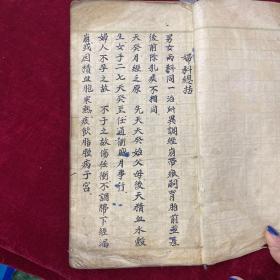 婦科總括
男女兩科同一治所異調經崩帶癥嗣育胎前並產
後前陰乳疾不相同
天癸月經之原 先天天癸始父母後天精血水穀
生女子二七天癸至任通衝盛月事行
婦人不孕之故 不子之故傷任衝不調帶下經漏
崩或因積血胞寒熱痰飲脂膜病子宮